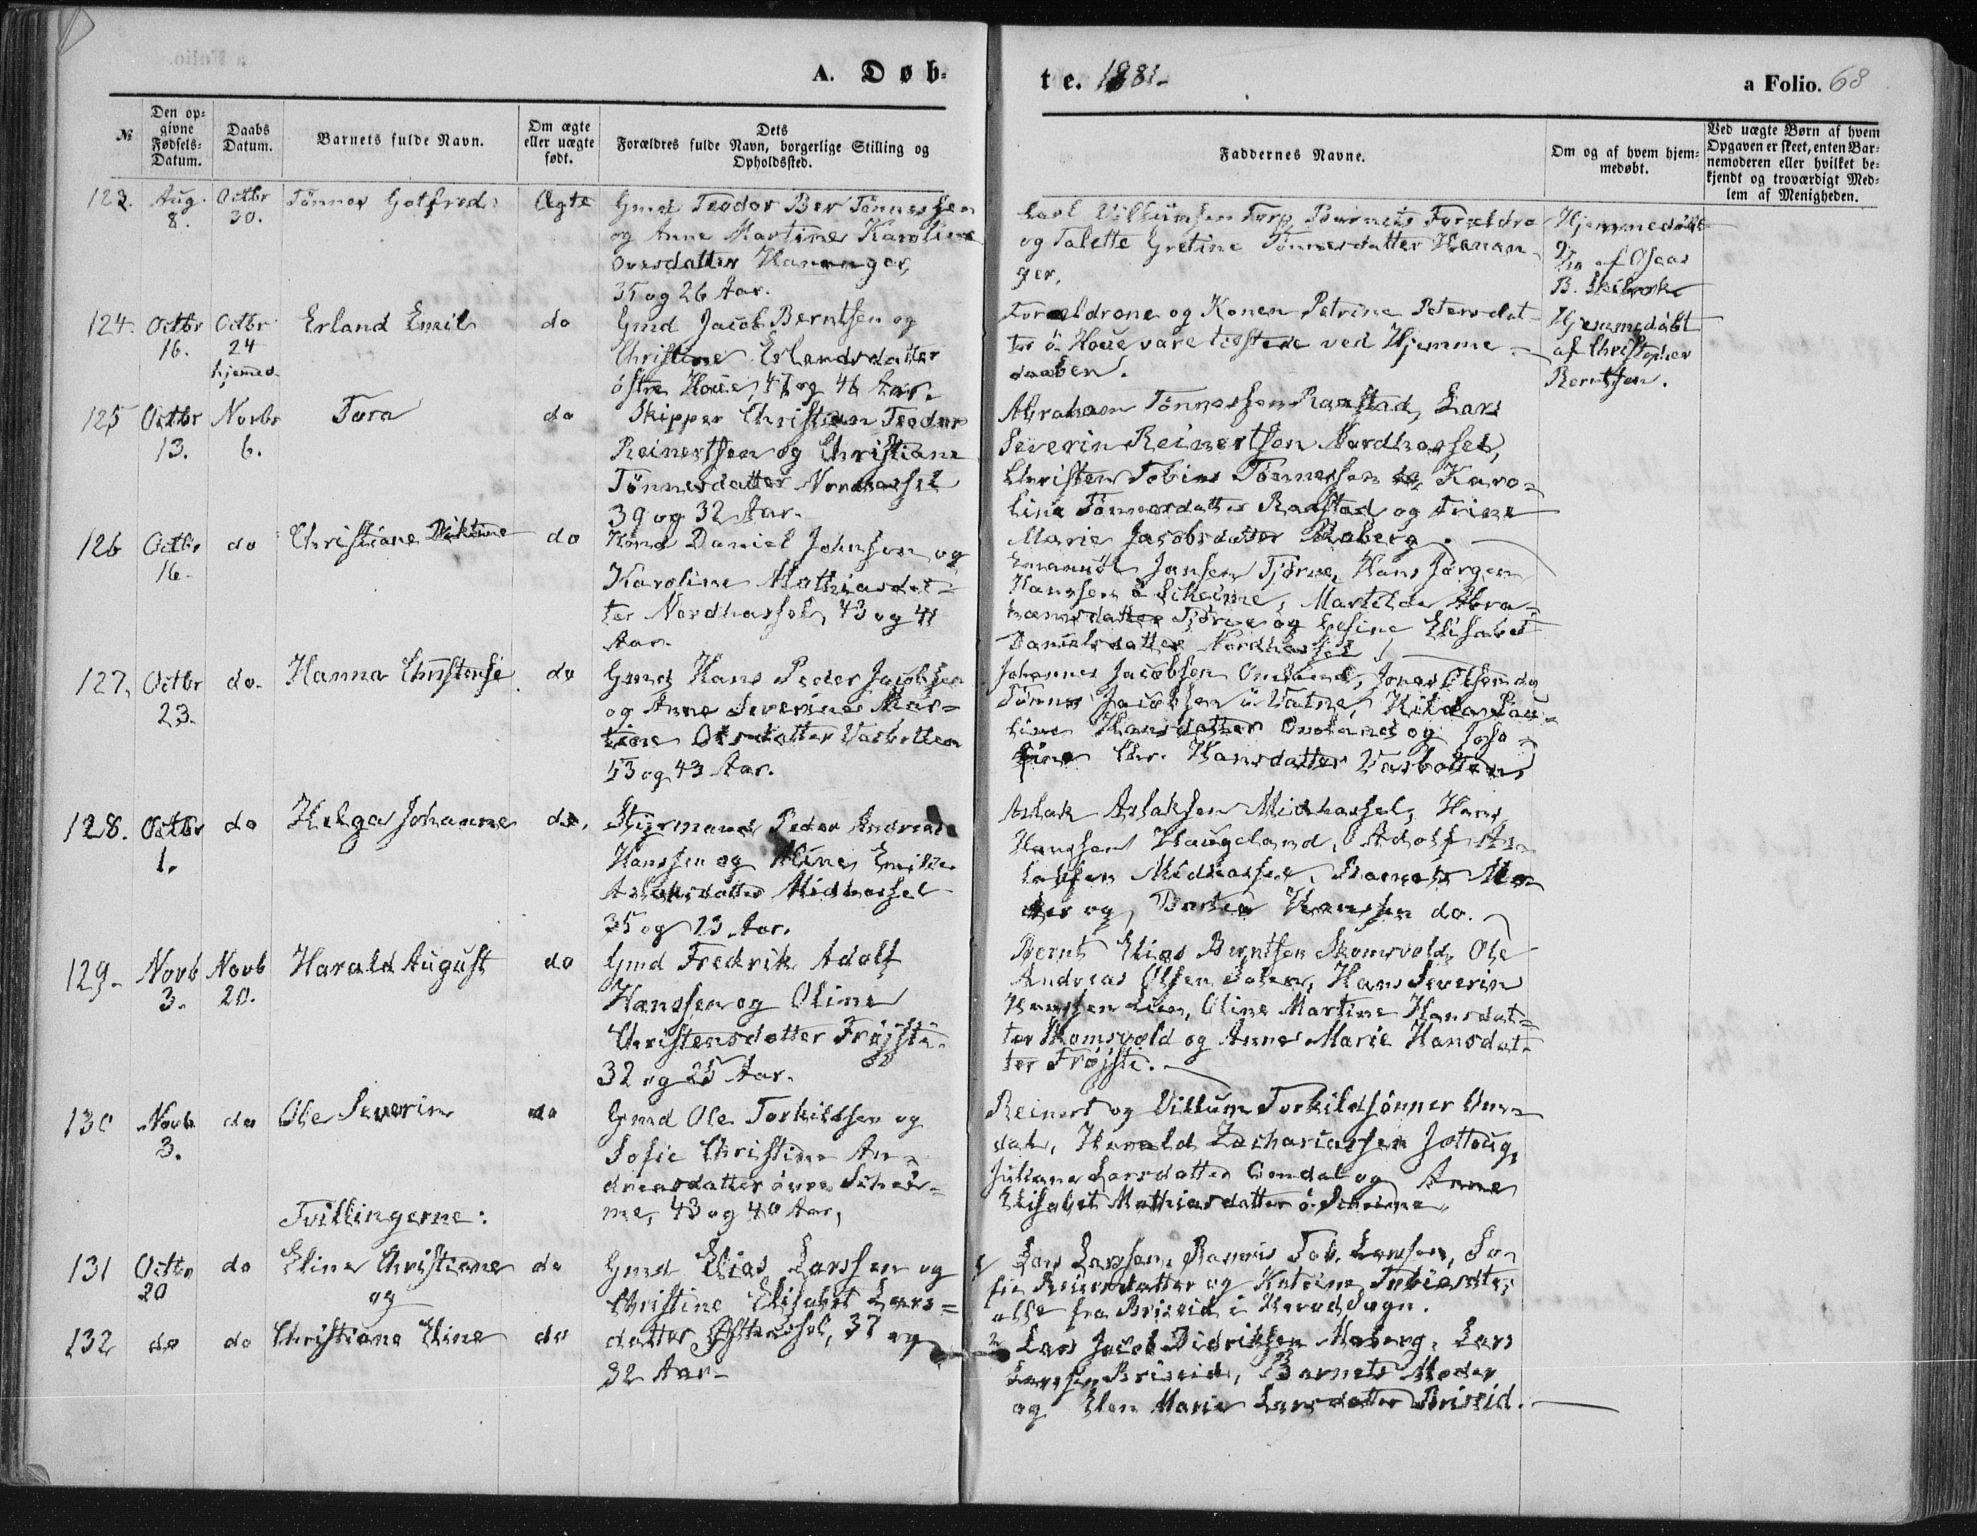 A. Døb-
te. 1881-
a Folio. 68
№
Den op-
givne
Fødsels-
Datum.
Daabs
Datum.
Barnets fulde Navn.
Om ægte
eller uægte
født.
Dets
Forældres fulde Navn, borgerlige Stilling og
Opholdssted.
Faddernes Navne.
Om og af hvem hjem-
medøbt.
Ved uægte Børn af hvem
Opgaven er skeet, enten Bar-
nemoderen eller hvilket be-
kjendt og troværdigt Med-
lem af Menigheden.
123. Aug. 8. Octbr 30. Tønnes Gotfred. Ægte
Gmd Teodor Ber Tønnessen
og Anne Martine Karoline
Ovesdatter Hananger,
35 og 26 Aar.
Torp, Barnets Forældre
og Talette Gretine Tønnesdatter Hanan-
ger.
Hjemmedøbt
af
B.
124. Octbr 16. Octbr 24 hjemed. Erland Emil do
Gmd Jacob Berntsen og
Christine Erlandsdatter
østre Houe, 47 og 46 Aar.
Forældrene og Konen Petrine Petersdat-
ter ø. Houe vare tilstede ved Hjemme-
daaben.
Hjemmedøbt
af Christopher
Berntsen.
125 Octbr 13. Novbr 6. Tora do
Skipper Christian Teodor
Reinertsen og Christiane
Tønnesdatter Nordhassel
39 og 32 Aar.
Abraham Tønnessen Raastad, Lars
Severin Reinertsen Nordhassel,
Christen Tobias Tønnessen do, Karo-
line Tønnesdatter Raastad og Trine
Marie Jacobsdatter Moberg.
126 Octbr 16. do Christiane do
Daniel Johnsen og
Karoline Mathiasdat-
ter Nordhassel, 43 og 41
Aar.
Emanuel Jansen Tjørve, Hans Jørgen
Hanssen ø Scheime, Martilde Abra-
hamsdatter Tjørve og Elisabet
Danielsdatter Nordhassel
127. Octbr 23. do. Hanna Christense do
Gmd Hans Peder Jacobsen
og Anne Severine Mar-
tine Olsdatter Vasbotten
53 og 43 Aar.
Johannes Jacobsen Omland, Jonas Olsen do
Tønnes Jacobsen ø Vatne, Hilda Pau-
line Hansdatter Omland og Josa-
fine Chr. Hansdatter Vasbotten,
128. Octbr 1. do Helga Johanne do.
Styrmand Peder Andreas
Hanssen og Aline Emilie
Aslaksdatter Midhassel
35 og 23 Aar.
Aslak Aslaksen Midhassel, Hans
Hanssen Haugeland, Adolf As-
laksen Midhassel, Barnets Mo-
der og Hanssen do.
129. Novb 3. Novb 20. Harald August do
Gmd Fredrik Adolf
Hanssen og Oline
Christensdatter Frøjsti.
32 og 25 Aar.
Bernt Elias Berntsen Skomsvold, Ole
Andreas Olsen, Hans Severin
Hanssen Lien, Oline Martine Hansdat-
ter Skomsvold og Anne Marie Hansdat-
ter Frøjsti.
130 Novb 3. do Ole Severin do
Gmd Ole Torkildsen og
Sofie Christine An-
dreasdatter øvre Schei-
me, 43 og 40 Aar,
Reinert og Villum Torkildsønner Om-
dal, Harald Zachariassen Jøttoug,
Juliane Larsdatter Omdal og Anne
Elisabet Mathiasdatter ø. Scheime.
Tvillingerne:
131 Octbr 20 do Eline Christiane do
og
132 do do Christiane Eline do
Gmd Elias Larssen og
Christine Elisabet Lars-
datter Østhassel, 37 og
32 Aar-
1 Lars Larssen, Tob. Larssen, So-
fie Reiersdatter og Katrine Tobiasdtr,
alle fra Briseid i Herad Sogn.
2 Lars Jacob Didriksen Moberg, Lars
Larssen Briseid, Barnets Moder
og Elen Marie Larsdatter Briseid.